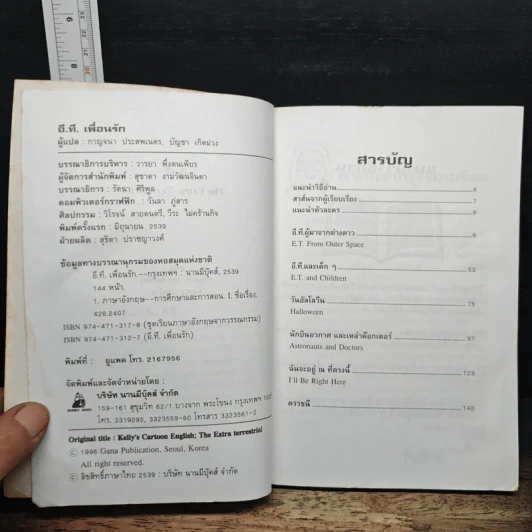 อี.ที. เพื่อนรัก
ผู้แปล : กาญจนา ประสพเนตร, บัญชา เกิดม่วง
บรรณาธิการบริหาร : วารยา พึ่งตนเพียร
ผู้จัดการสำนักพิมพ์ : สุชาดา งามวัฒนจินดา
บรรณาธิการ : รัตนา ศิริพูล
คอมพิวเตอร์กราฟฟิก : วันดา ภู่สาร
ศิลปกรรม : วิโรจน์ สายดนตรี, วีระ ไม่คร้านกิจ
พิมพ์ครั้งแรก : มิถุนายน 2539
ม้ายผลิต : สุธิดา ปราชญาวงศ์
ข้อมูลทางบรรณานุกรมของหอสมุดแห่งชาติ
อี.ที. เพื่อนรัก.--กรุงเทพฯ : นานมีบุ๊คส์, 2539
144 หน้า.
1. ภาษาอังกฤษ--การศึกษาและการสอน. I. ชื่อเรื่อง.
428.2407
ISBN 974-471-317-8 (ชุดเรียนภาษาอังกฤษจากวรรณกรรม)
ISBN 974-471-312-7 (อี.ที. เพื่อนรัก)
พิมพ์ที่ : ยูแพด โทร. 2167956
จัดพิมพ์และจัดจำหน่ายโดย :
บริษัท นานมีบุ๊คส์ จำกัด
159-161 สุขุมวิท 62/1 บางจาก พระโขนง กรุงเทพฯ
โทร. 3319292, 3323559-60 โทรสาร 3323561-2
Original title : Kelly's Cartoon English; The Extra terrestrial
© 1996 Gana Publication, Seoul, Korea
All right reserved.
© ลิขสิทธิ์ภาษาไทย 2539 : บริษัท นานมีบุ๊คส์ จำกัด
สารบัญ
แนะนำวิธีอ่าน 6
สาส์นจากผู้เรียบเรียง 7
แนะนำตัวละคร 8
อี.ที.ผู้มาจากต่างดาว 9
E.T. From Outer Space
อี.ที.และเด็ก ๆ 53
E.T. and Children
วันฮัลโลวีน 75
Halloween
นักบินอวกาศ และเหล่าด๊อกเตอร์ 97
Astronauts and Doctors
ฉันจะอยู่ ณ ที่ตรงนี้ 123
I'll Be Right Here
ดรรชนี 140